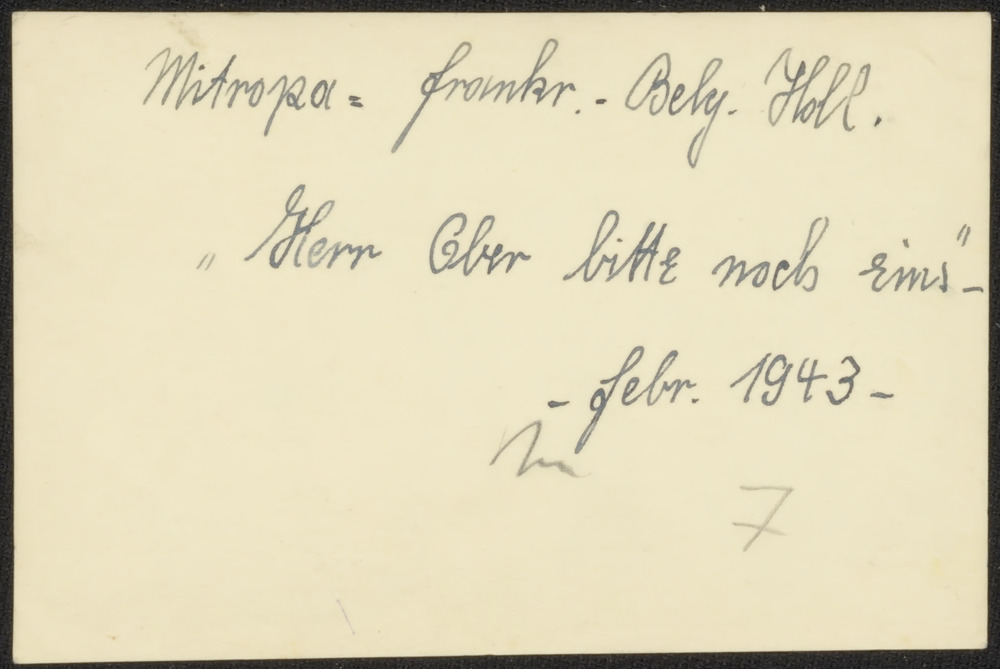 Mitropa = Frankr. - Belg. Holl.
„Herr Ober bitte noch eins" -
- Febr. 1943 -
7